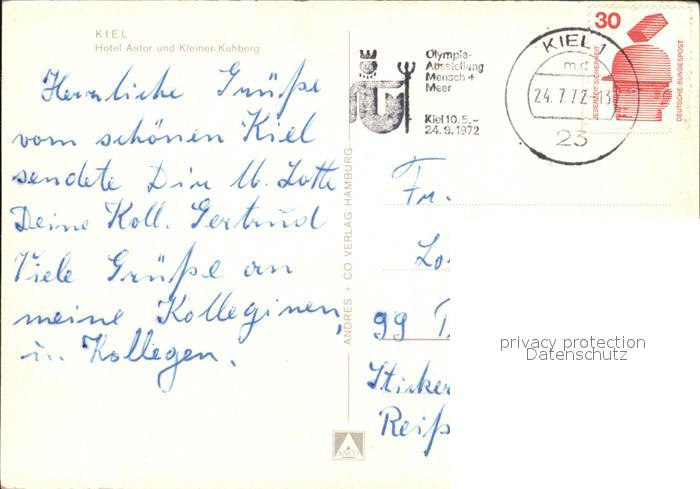 KIEL
Hotel Astor und Kleiner Kuhberg
Herzliche Grüße
vom schönen Kiel
sendete Dir lb. Lotte
Deine Koll. Gertrud
Viele Grüße an
meine Kolleginen,
u. Kollegen.
ANDRES + CO VERLAG HAMBURG
ANCO
Olympia-
Ausstellung
Mensch +
Meer
Kiel 10.5.–
24.9.1972
KIEL 1
md
24.7.72-13
23
30
JEDERZEIT SICHERHEIT
DEUTSCHE BUNDESPOST
Fr.
Lo
99
Sticker
Reiß
privacy protection
Datenschutz